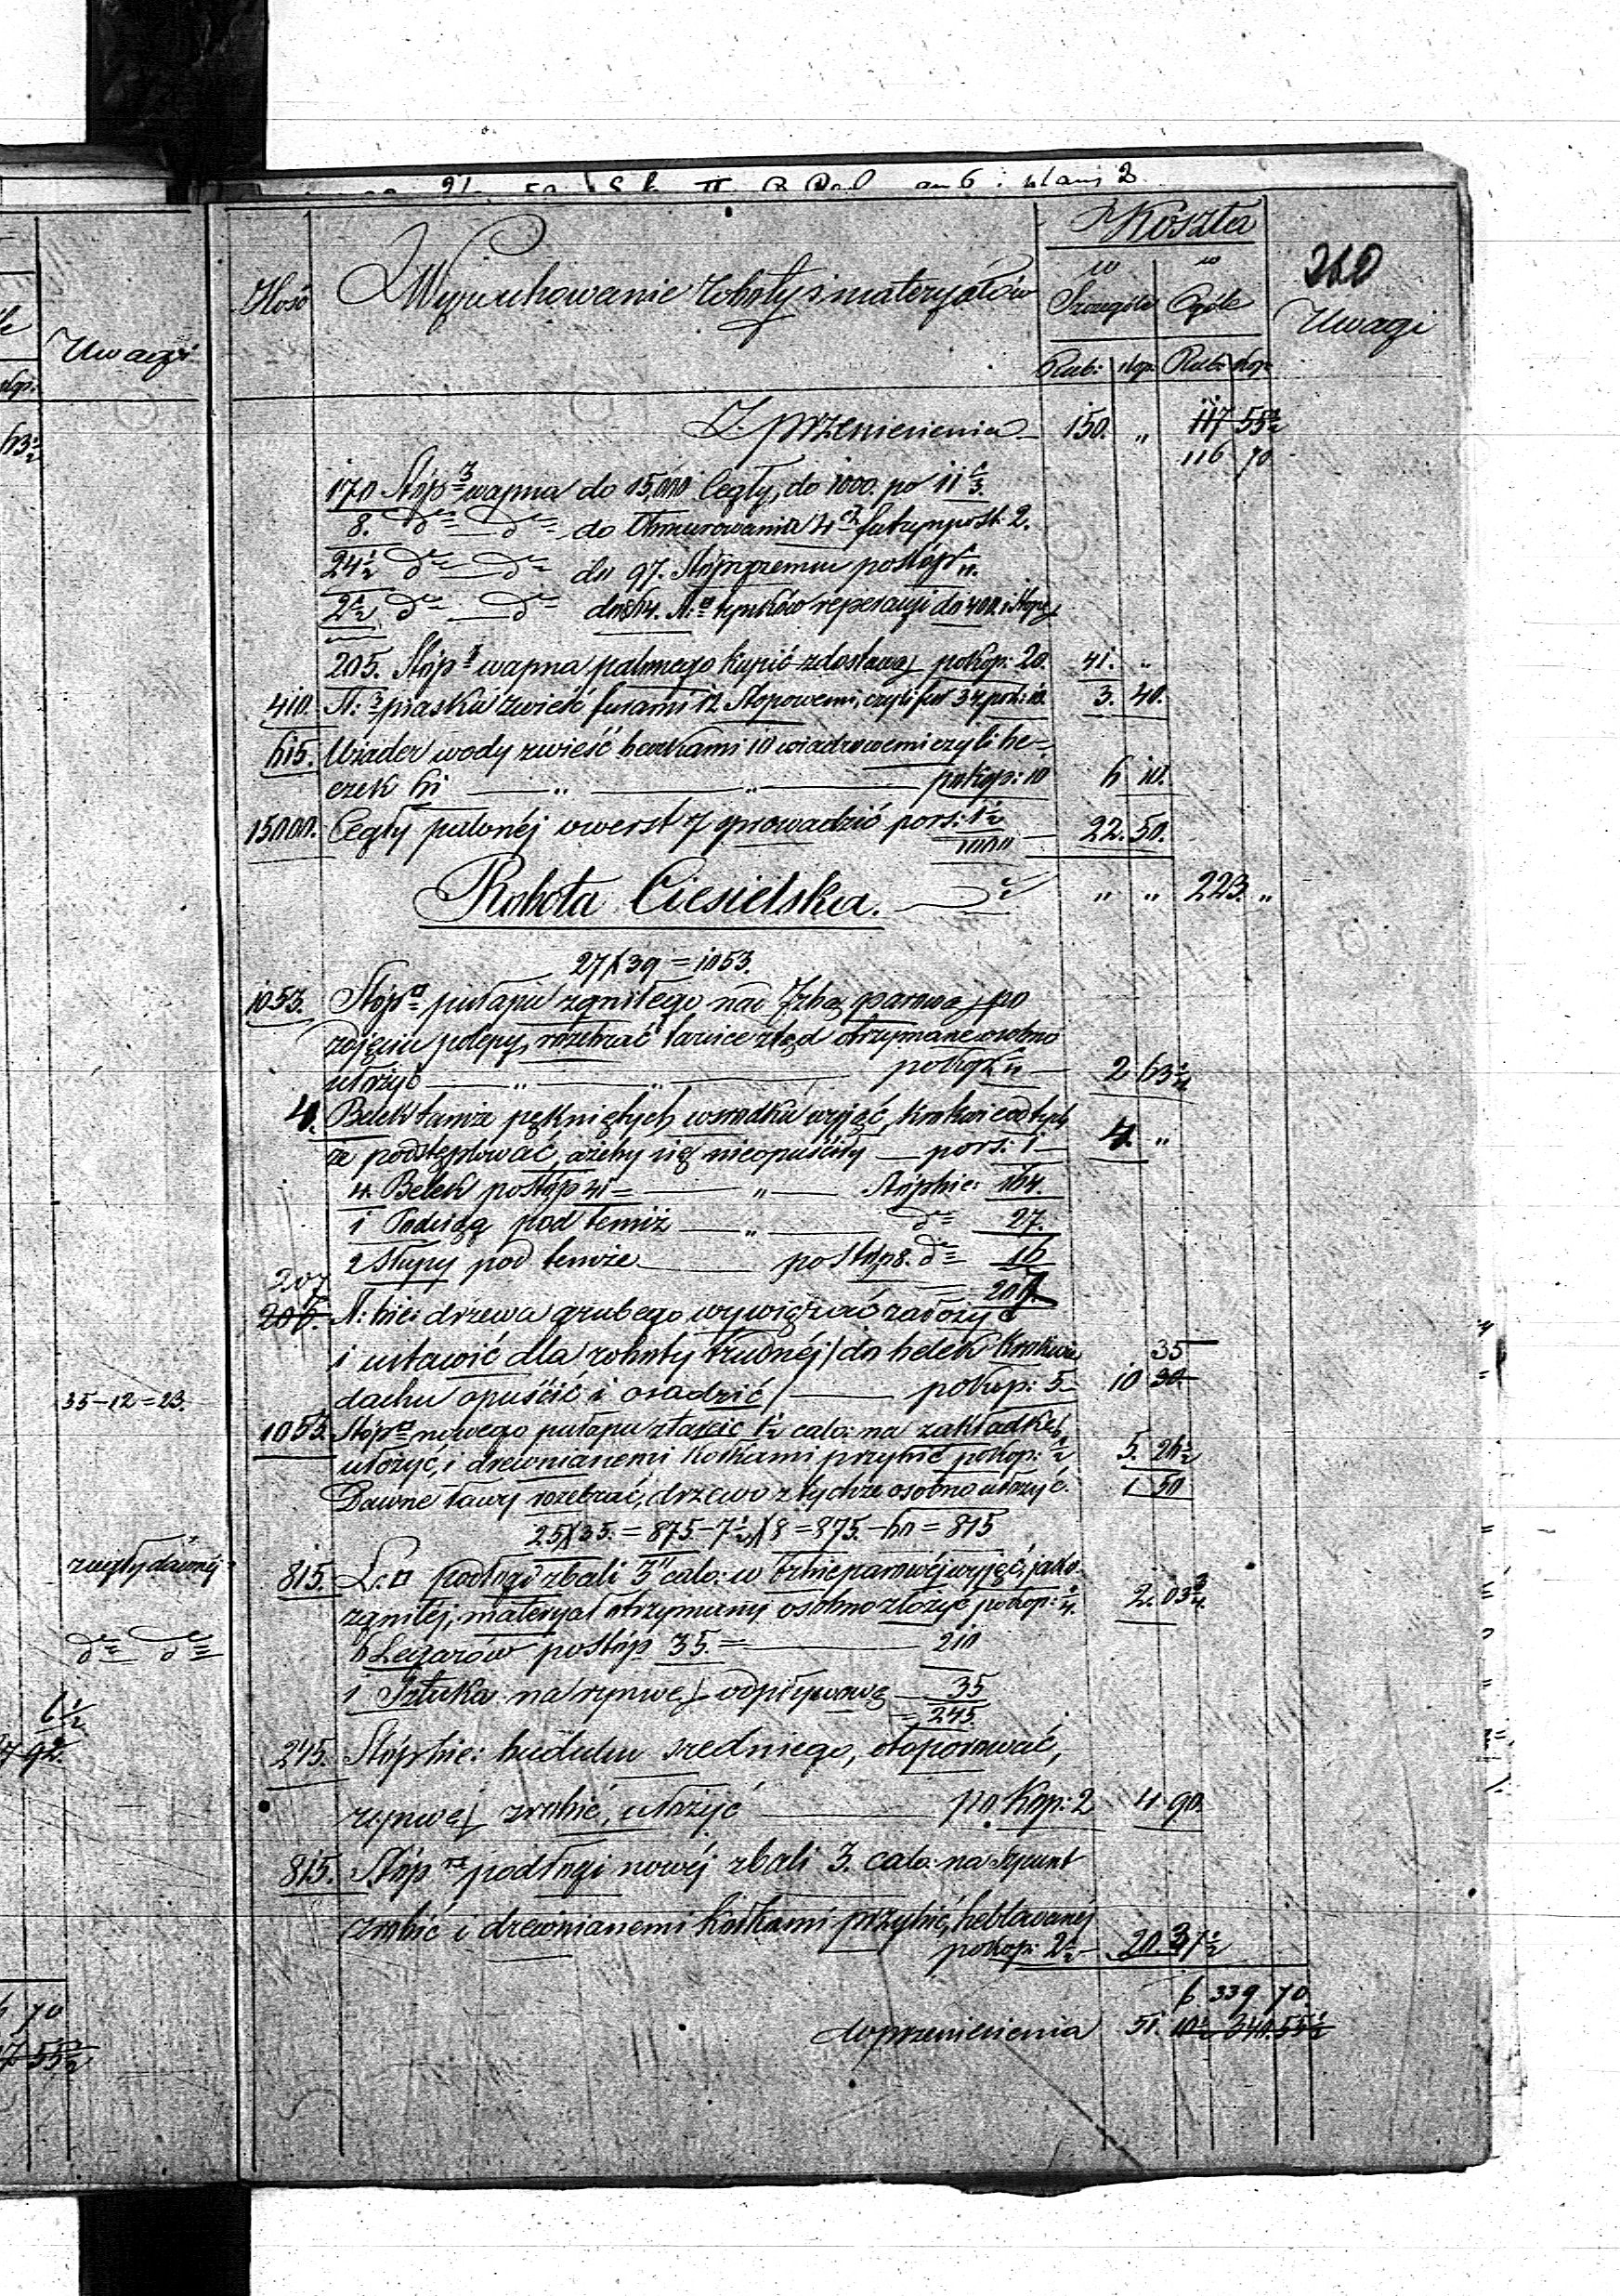 Uwagi
63½
35-12=23.
z cegły dawnéj
6½
92.
70
55½
260
Ilość
Wyrachowanie roboty i materyałów
Koszta
w Szczególe
w Ogóle
Uwagi
Rub: kop: Rub: kop:
Z przeniesienia 150. " 117 55½
116 70
170 Stóp 3 wapna do 15,000 Cegły, do 1000. po 11⅓.
8. do Obmurowania 4ch futryn po st: 2.
24½ do 97. Stóp po stóp ¼.
2½
205. Stóp 3 wapna palonego kupić z dostawą po kop: 20. 41. "
410. St: 3 piasku zwieść furami 12 Stopowemi, czyli fur 34 po k: 10. 3. 40.
615. Wiader wody zwieść beczkami 10 wiadrowemi czyli be-
czek 61 " " po kop: 10 6 10.
15000. Cegły palonéj owerst 7 sprowadzić po rs: 1½ / 1000 22. 50.
" " 223. "
Robota Ciesielska.
27X39=1053.
1053. Stóp □ pułapu zgniłego nad Izbą parową, po
zdjęciu polepy, rozebrać tarcice ztąd otrzymane osobno
ułożyć " " po kop: ¼ 2 63¼
4. Belek tamże pękniętych w środku wyjąć, krokwie od tych
że podstęplować, ażeby się nieopuściły po rs: 1 4. "
4. Belek po stóp 41 = " Stóp bie: 164.
1 Podciąg pod temiż " 27.
2 Słupy pod temże po stóp 8. 16
207
207
206. St: bie: drzewa grubego wywiązać założyć
i ustawić dla roboty trudnéj / do belek krokwie
35
dachu opuścić i osadzić / po kop: 5 10 30.
1053. Stóp □ nowego pułapu z tarcic 1½ calo: na zakładkę
ułożyć, i drewnianemi kołkami przybić po kop: ½ 5. 26½
Dawne ławy rozebrać, drzewo z tychże osobno ułożyć. 1 50
25X35.=875-7½X8=875.-60=815
815. St: □ podłogi z bali 3" calo: w Izbie parowéj wyjąć, jako
zgniłéj, materyał otrzymany osobno złożyć po kop: ¼. 2. 03¾
6 Legarów po stóp 35.= 210
1 Sztuka na rynwę odpływową 35
= 245.
245. Stóp bie: budulcu średniego, otoporować,
rynwę zrobić, ułożyć po Kop: 2 4 90.
815. Stóp □ podłogi nowéj z bali 3. calo: na szpunt
zrobić i drewnianemi kołkami przybić, heblowanéj
po kop: 2½ 20. 37½
6 339 70.
do przeniesienia 51. 10½ 340. 55½